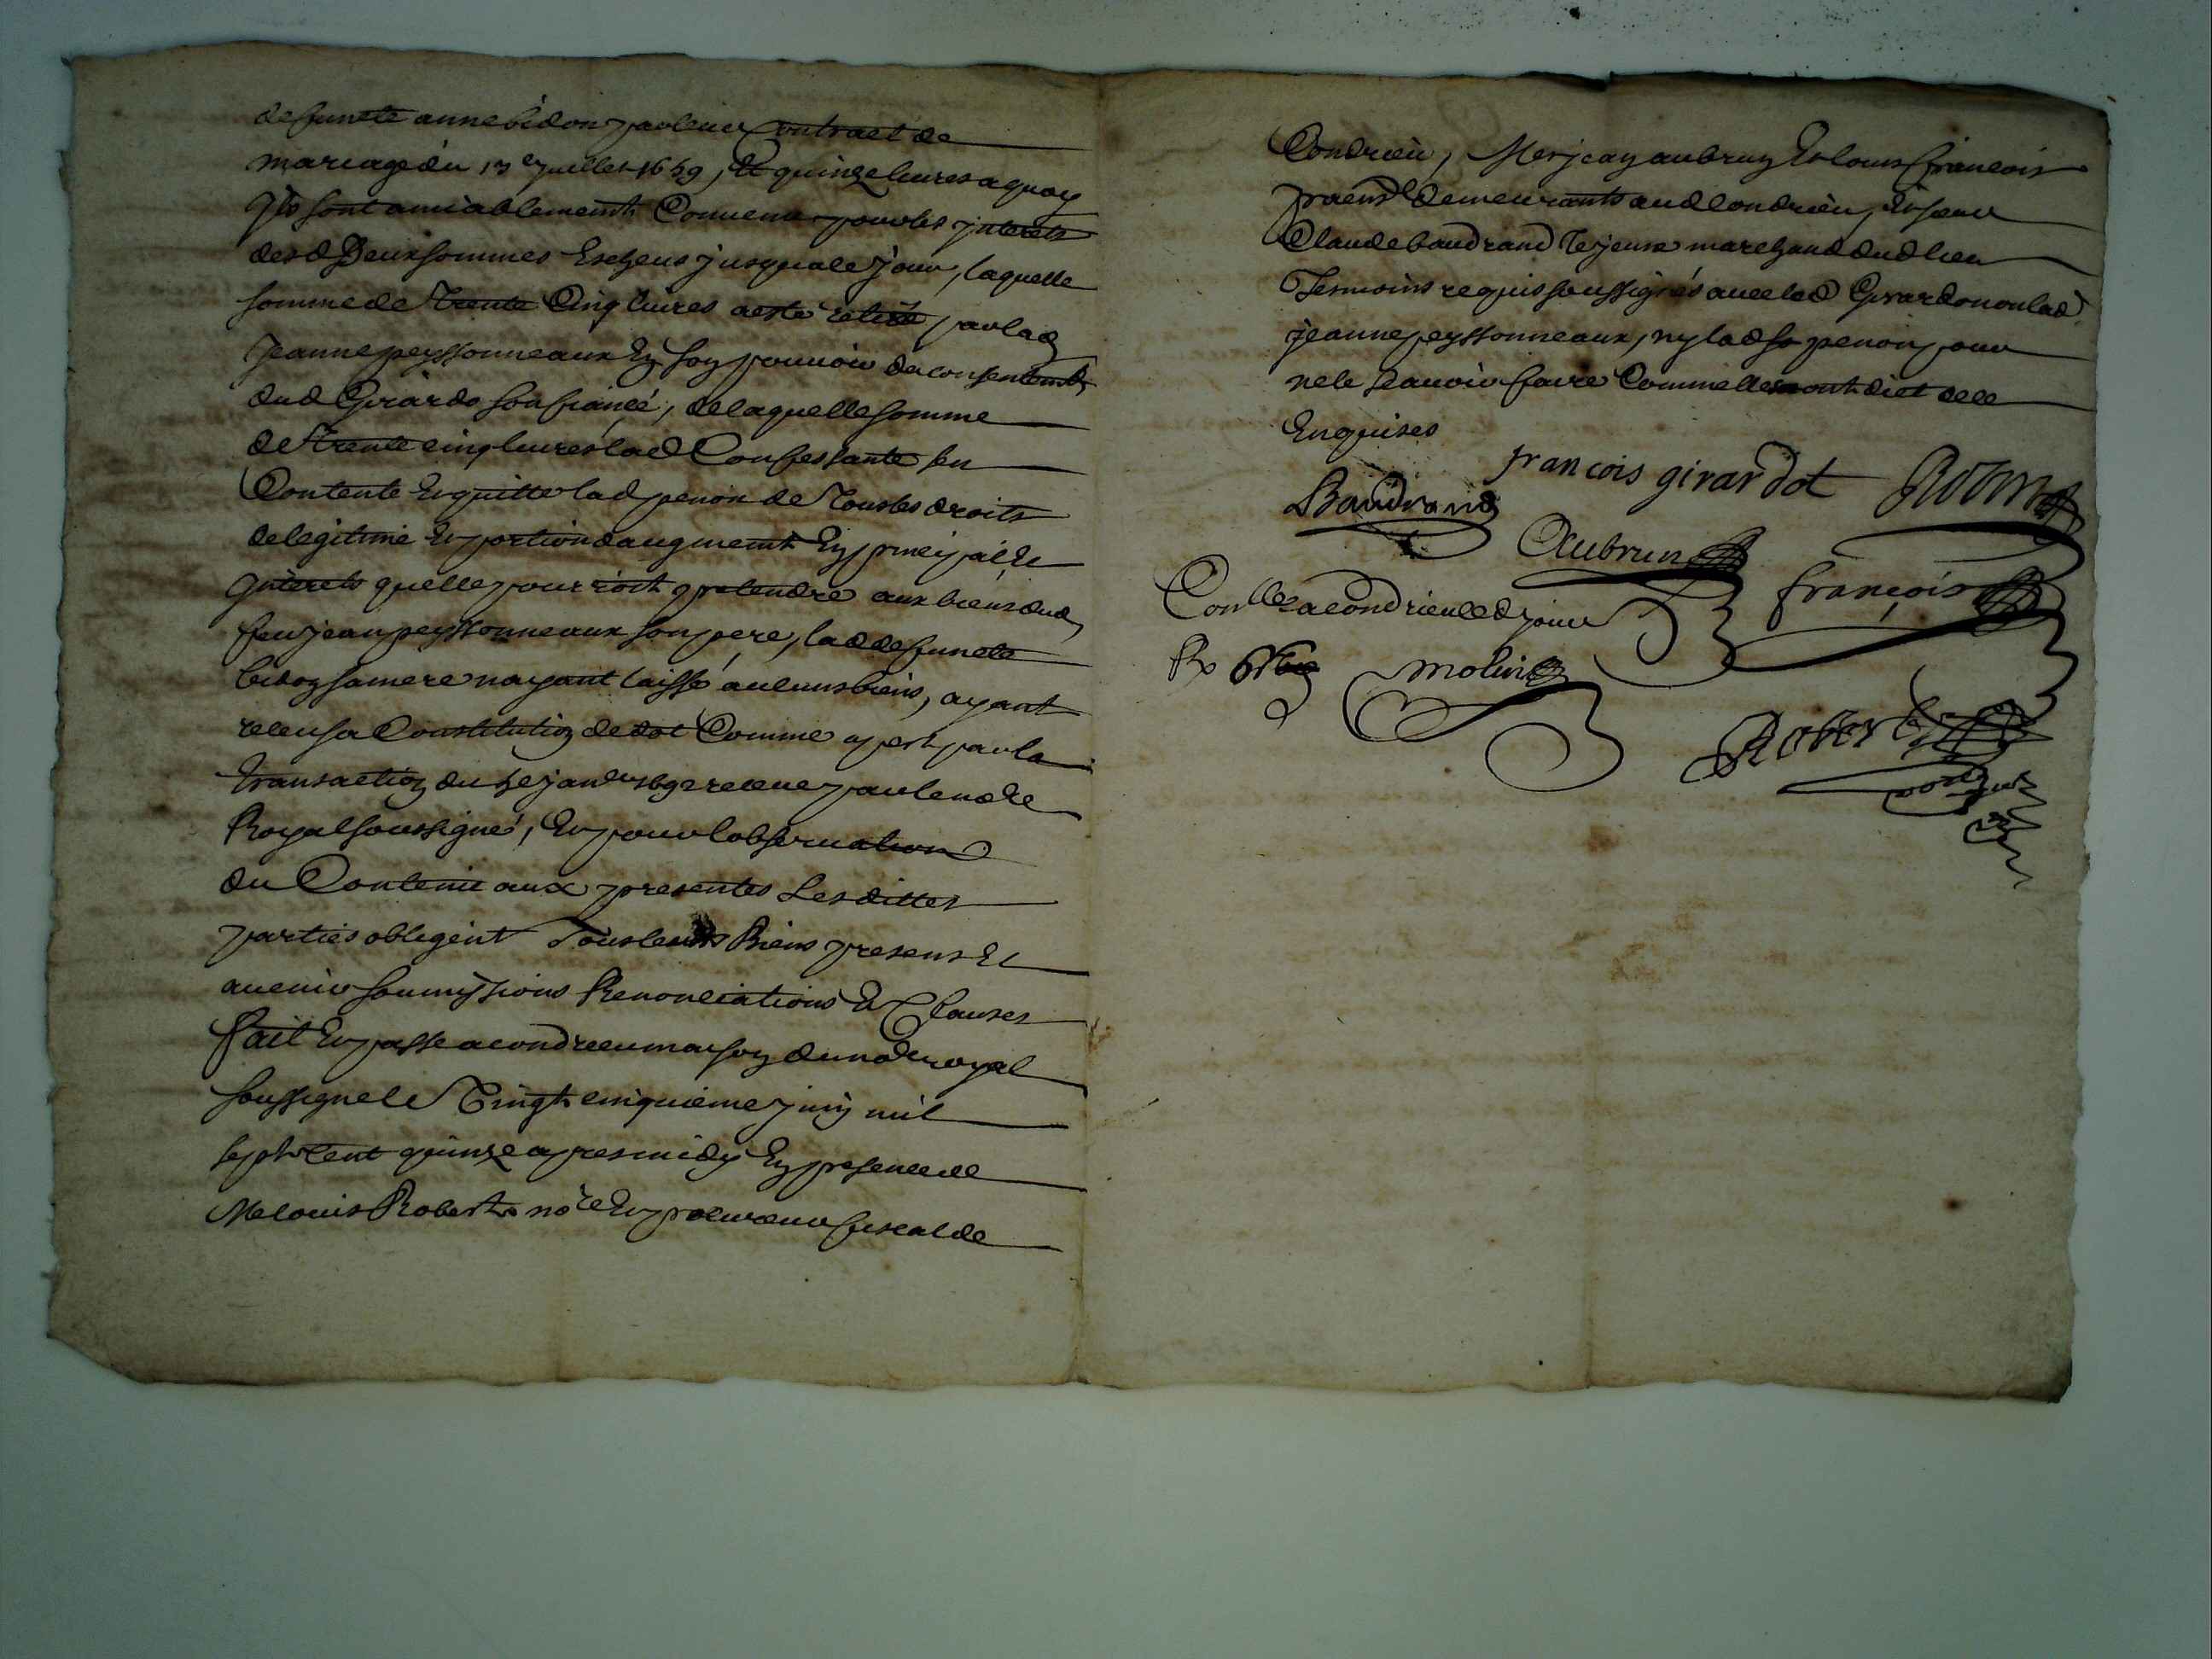 defuncte anne bidon par leur Contract de
mariage du 13e juillet 1659, Et quinze livres a quoy
Ils sont amiablement Convenu pour les interets
desd Deux sommes Escheus jusqua ce jour, laquelle
somme de Trente Cinq livres a esté retiré par lad
Jeanne peyssonneaux En son pouvoir du consentemt
dud Girardo son fiancé, de laquelle somme
de trente cinq livres lad Confessante sen
Contente Et quitte lad penon de Tous les droits
de legitime Et portion daugment En principal Et
Interets quelle pourroit pretendre aux biens dud
feu jean peyssonneaux son pere, lad defuncte
bidon sa mere nayant laissé aucuns biens, ayant
receu sa Constitution de dot Comme apert par la
transaction du 5e janer 1692 receue par le nore
Royal soussigné, Et pour lobservation
du Contenu aux presentes Lesdittes
parties obligent Tous leurs Biens presens Et
avenir soumissions Renonciations Et Clauses
fait Et passé a condrieu maison du nore royal
soussigné le Vingt cinquieme juin mil
sept cent quinze apres midy En presence de
Me louis Robert nore Et procureur fiscal de
Condrieu, Mes jean aubrun Et louis françois
praens demeurants aud Condrieu, Et sieur
Claude baudrand le jeune marchand dud lieu
Tesmoins requis soussignés avec led Girardo non lad
jeanne peyssonneaux, ny lad penon pour
ne le scavoir faire Comme elles ont dict de ce
Enquises
francois girardot
Baudrand
Aubrun
françois
Conllé a condrieu led jour
Rx
molin
Robert